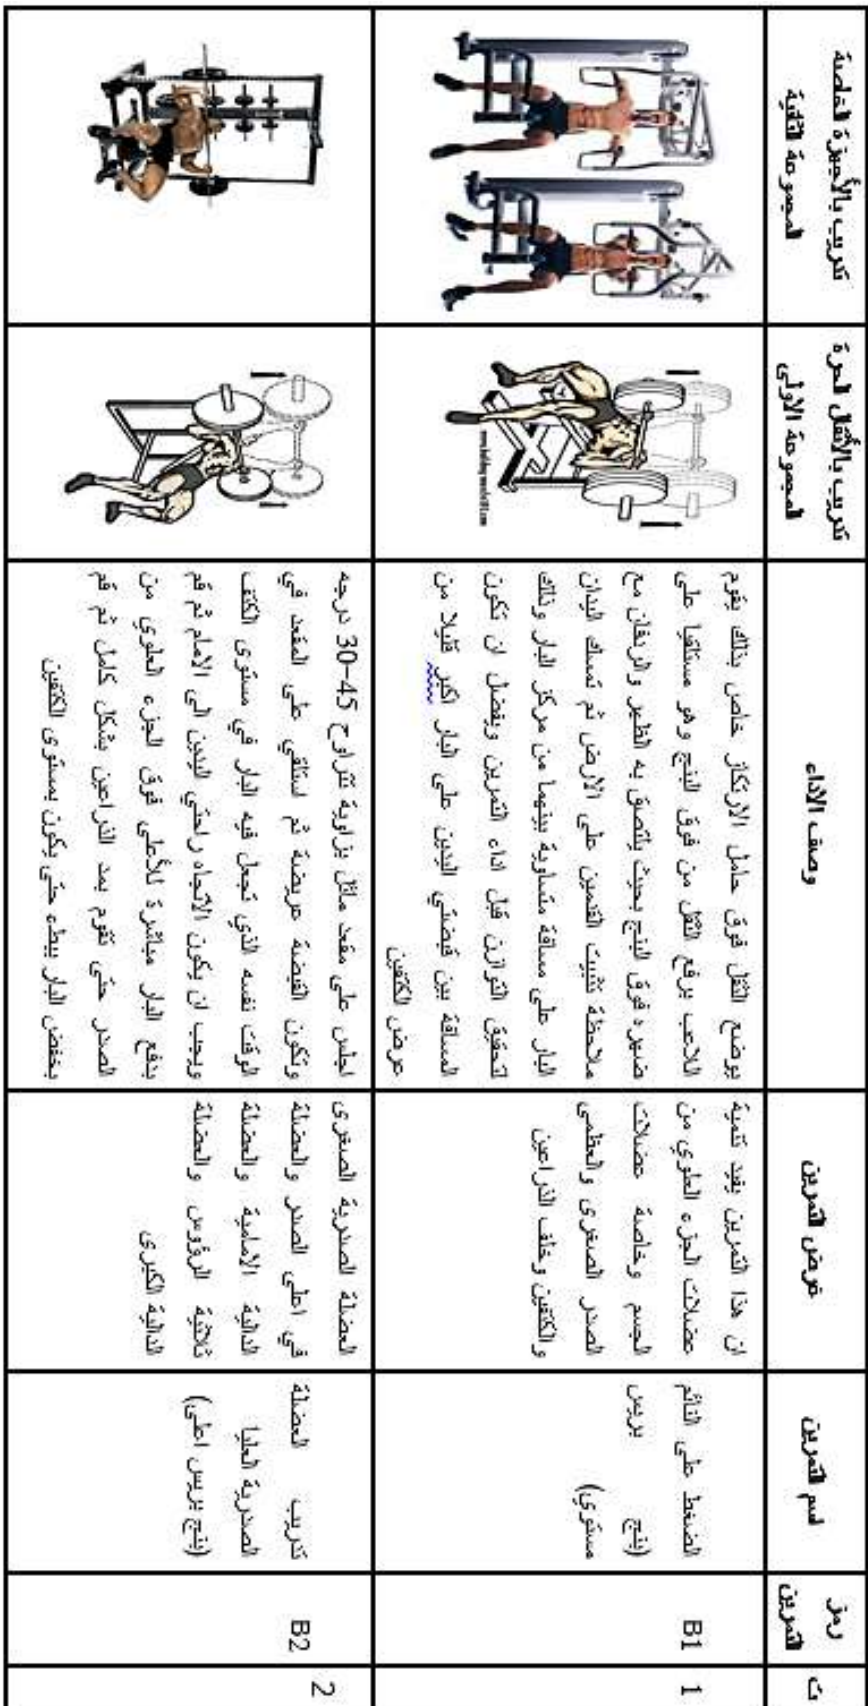 ت
رمز التمرين
اسم التمرين
غرض التمرين
وصف الاداء
تدريب بالأثقل الحرة
المجموعة الاولى
تدريب بالأجهزة الخاصة
المجموعة الثانية
1
B1
الضغط على النائم
(بنج بريس
مستوي)
ان هذا التمرين يفيد تنمية
عضلات الجزء العلوي من
الجسم وخاصة عضلات
الصدر الصغرى والعظمى
والكتفين وخلف الذراعين
يوضع الثقل فوق حامل الارتكاز خاص بذلك يقوم
اللاعب برفع الثقل من فوق البنج وهو مستلقيا على
ضهره فوق البنج بحيث يلتصق به الظهر والردفان مع
ملاحظة تثبيت القدمين على الارض ثم تمسك اليدان
البار على مسافة متساوية بينهما من مركز البار وذلك
لتحقيق التوازن قبل اداء التمرين ويفضل ان تكون
المسافة بين قبضتي اليدين على البار اكبر قليلا من
عرض الكتفين
2
B2
تدريب العضلة
الصدرية العليا
(بنج بريس اعلى)
العضلة الصدرية الصغرى
في اعلى الصدر والعضلة
الدالية الامامية والعضلة
ثلاثية الرؤوس والعضلة
الدالية الكبرى
اجلس على مقعد مائل بزاوية تتراوح 45-30 درجه
وتكون القبضة عريضة ثم استلقي على المقعد في
الوقت نفسه الذي تجعل فيه البار في مستوى الكتف
ويجب ان يكون الاتجاه راحتي اليدين الى الامام ثم قم
بدفع البار مباشرة للأعلى فوق الجزء العلوي من
الصدر حتى تقوم بمد الذراعين بشكل كامل ثم قم
بخفض البار ببطء حتى يكون بمستوى الكتفين